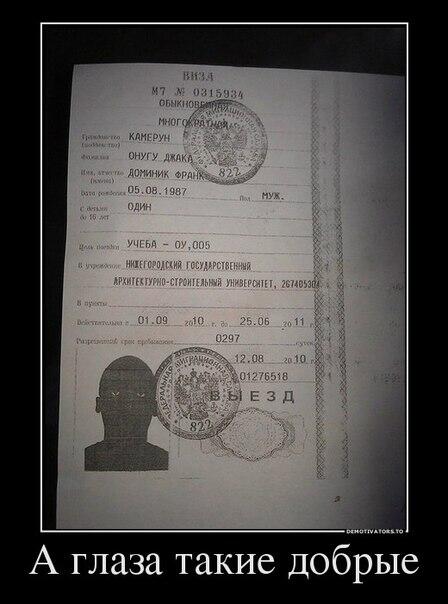 ВИЗА
М7 № 0315934
ОБЫКНОВЕННАЯ
МНОГОКРАТНАЯ
Гражданство КАМЕРУН
(подданство)
Фамилия ОНУГУ ДЖАКА
Имя, отчество ДОМИНИК ФРАНК
(имена)
Дата рождения 05.08.1987 Пол МУЖ.
С детьми ОДИН
до 16 лет
Цель поездки УЧЕБА - ОУ,005
В учреждение НИЖЕГОРОДСКИЙ ГОСУДАРСТВЕННЫЙ
АРХИТЕКТУРНО-СТРОИТЕЛЬНЫЙ УНИВЕРСИТЕТ,
В пункты
Действительна с 01.09 2010 г. до 25.06 2011 г.
Разрешенный срок пребывания 0297 суток
12.08 2010 г.
01276518
ВЫЕЗД
822
822
DEMOTIVATORS.TO
А глаза такие добрые